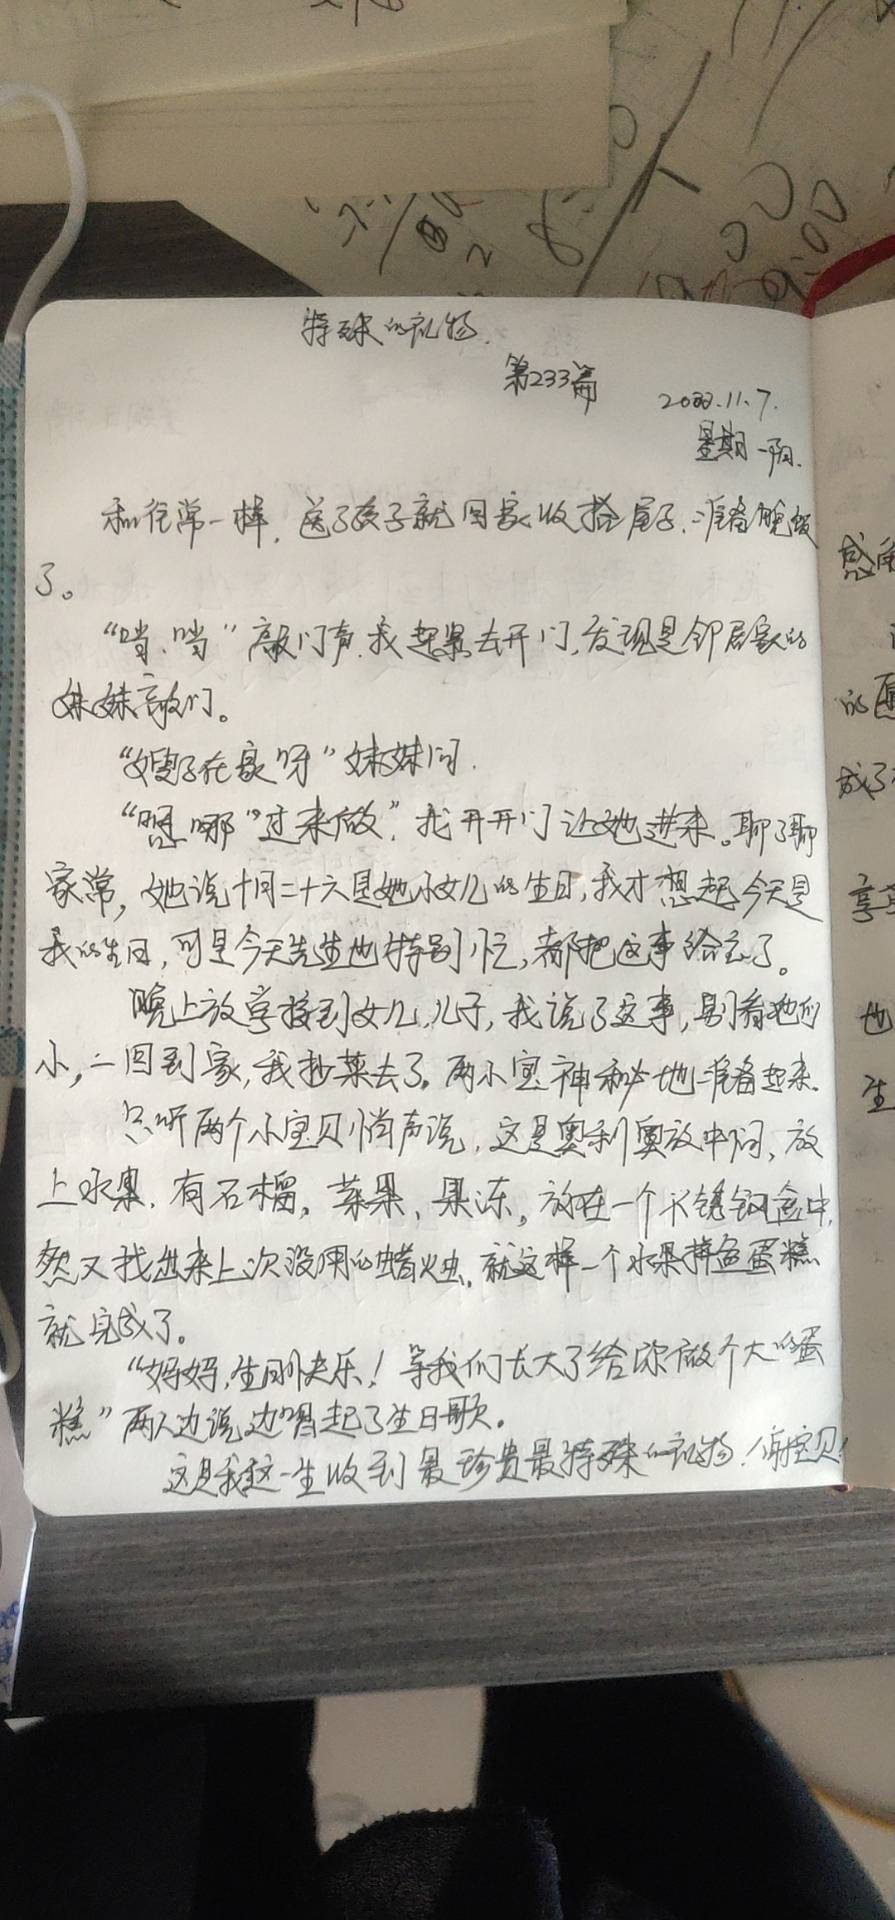 特殊的礼物.
第233篇
2022.11.7.
星期一 阴.
和往常一样,送了孩子就回家收拾屋子,准备晚饭
了。
“当、当”敲门声,我起紧去开门,发现是邻居家的
妹妹敲门。
“嫂子在家呀”妹妹问.
“嗯哪”“过来做”,我开开门让她进来。聊了聊
家常,她说十月二十六是她小女儿的生日,我才想起今天是
我的生日,可是今天先生也特别忙,都把这事给忘了。
晚上放学接到女儿,儿子,我说了这事,别看他们
小,一回到家,我抄菜去了。两小宝神秘地准备起来.
只听两个小宝贝悄声说,这是奥利奥放中间,放
上水果,有石榴,苹果、果冻,放在一个不锈钢盒中,
然又找出来上次没用的蜡烛,就这样一个水果拼盘蛋糕
就完成了。
“妈妈,生日快乐!等我们长大了给你做个大的蛋
糕”两人边说边唱起了生日歌。
这是我这一生收到最珍贵最特殊的礼物,俩宝贝!
感
的
成了
享
也
生